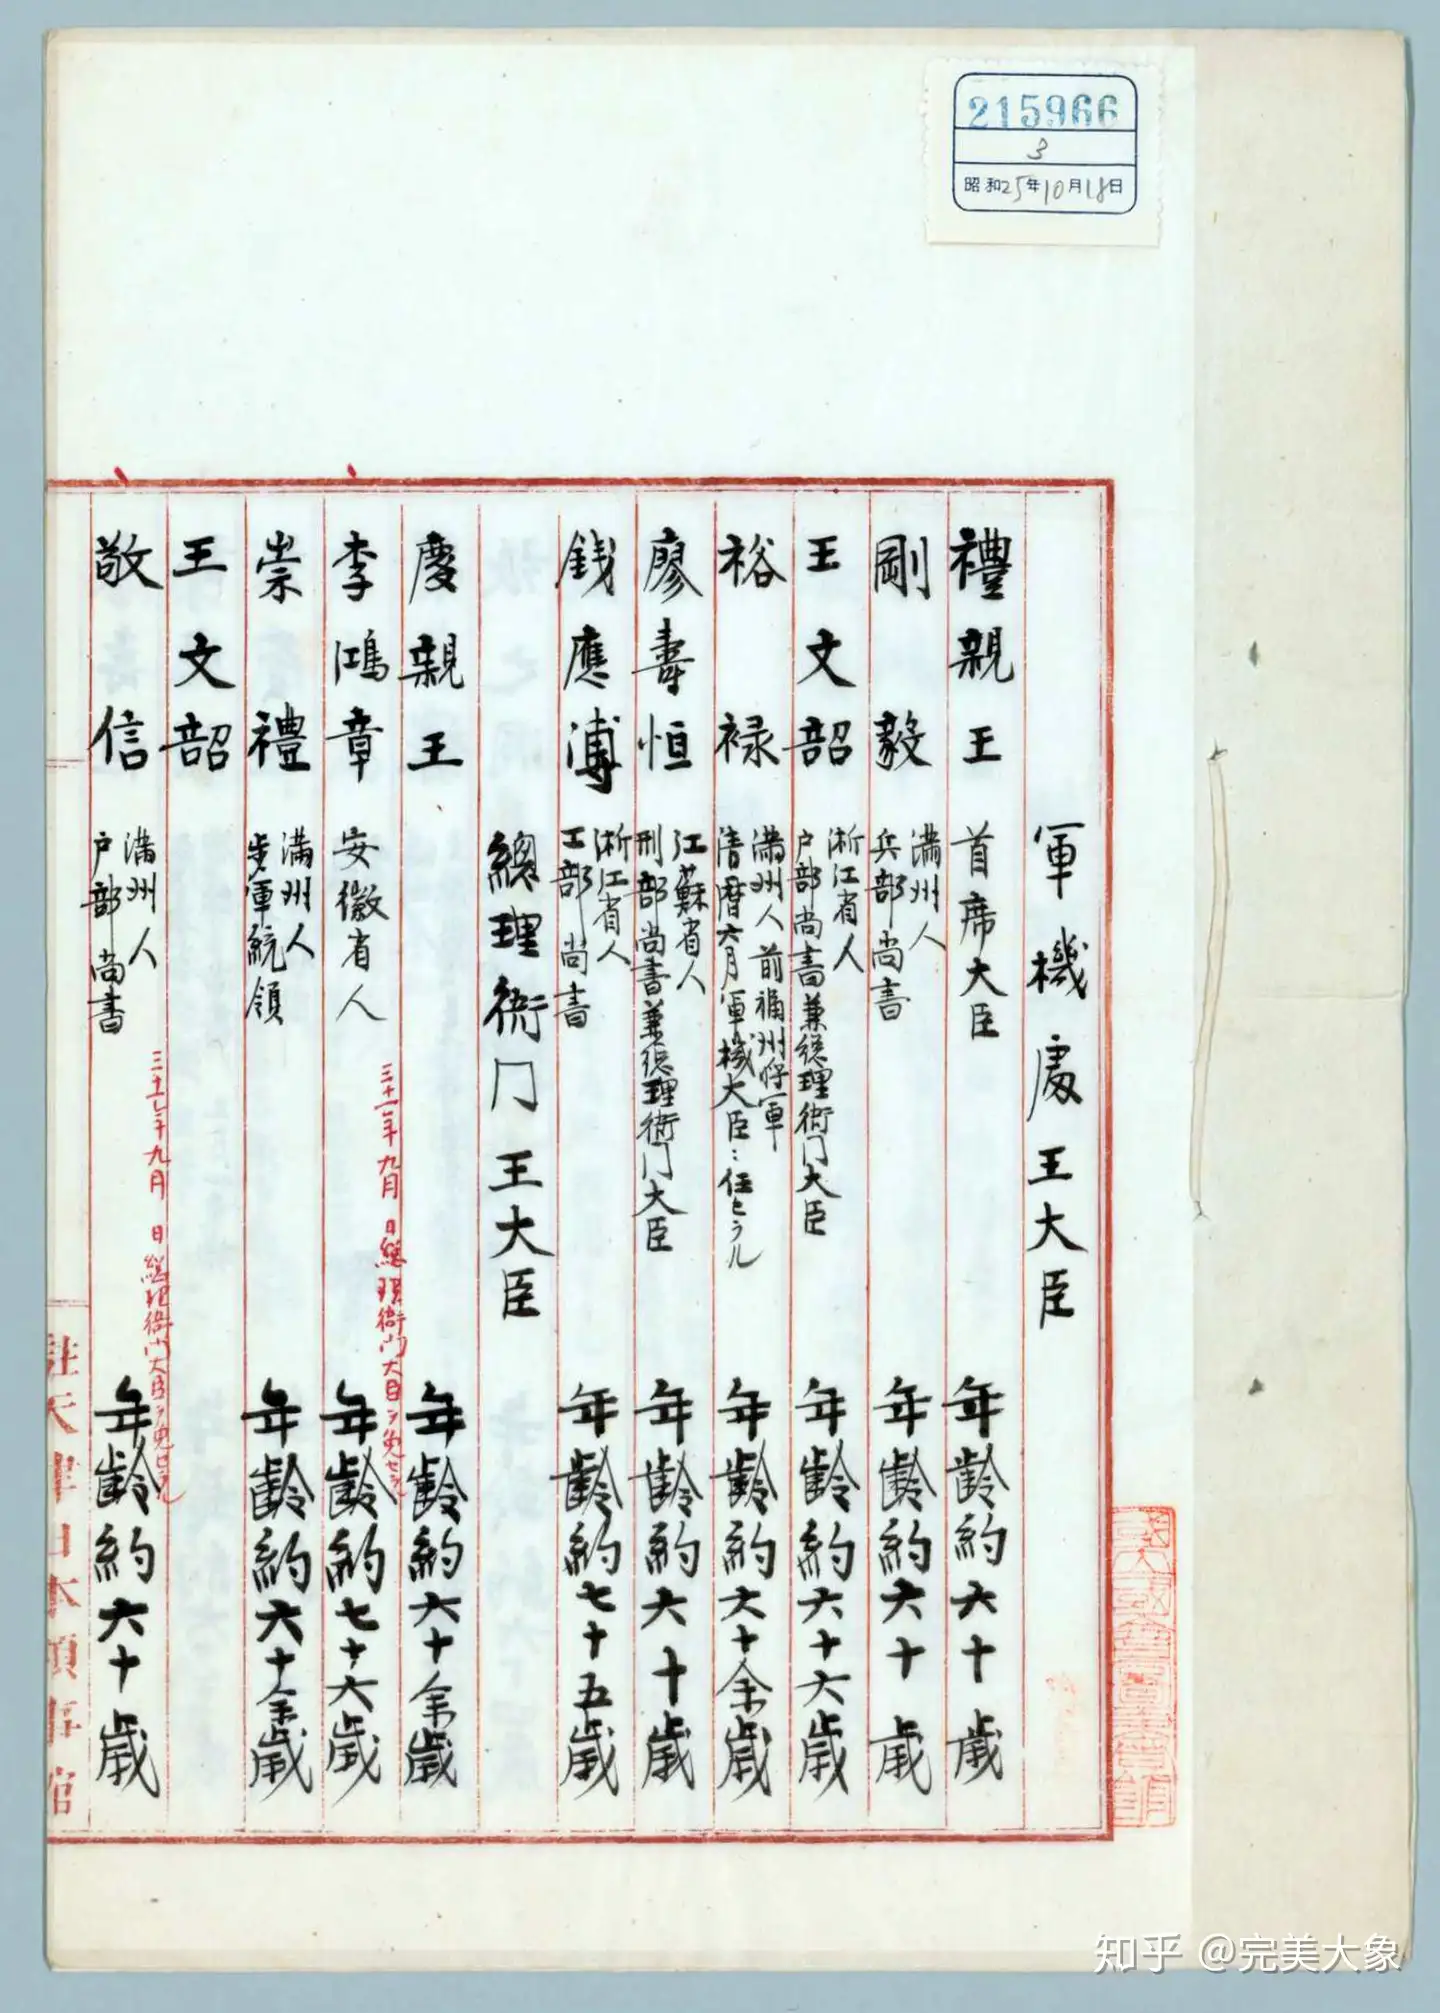 215966
3
昭和25年10月18日
軍機處王大臣
禮親王 首席大臣 年齡約六十歲
剛毅 滿州人 兵部尚書 年齡約六十歲
王文韶 淅江省人 戶部尚書兼總理衙门大臣 年齡約六十六歲
裕祿 滿州人 前福州將軍 清曆六月軍機大臣ニ任セラル 年齡約六十余歲
廖壽恒 江蘇省人 刑部尚書兼總理衙门大臣 年齡約六十歲
錢應溥 淅江省人 工部尚書 年齡約七十五歲
總理衙门王大臣
慶親王 年齡約六十余歲
李鴻章 安徽省人 年齡約七十六歲
三十一年九月 日總理衙门大臣ヲ免セラル
崇禮 滿州人 步軍統領 年齡約六十余歲
王文韶
敬信 滿州人 户部尚書 年齡約六十歲
九月 日總理衙门大臣ヲ免セラル
駐天津日本領事館
知乎 @完美大象